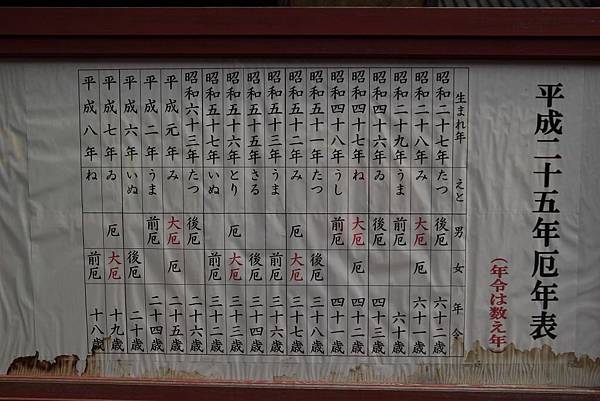 平成二十五年厄年表
(年令は数え年)
生まれ年 えと 男 女 年令
昭和二十七年 たつ 後厄 六十二歳
昭和二十八年 み 大厄 厄 六十一歳
昭和二十九年 うま 前厄 六十歳
昭和四十六年 ゐ 後厄 四十三歳
昭和四十七年 ね 大厄 厄 四十二歳
昭和四十八年 うし 前厄 四十一歳
昭和五十一年 たつ 後厄 三十八歳
昭和五十二年 み 厄 大厄 三十七歳
昭和五十三年 うま 前厄 三十六歳
昭和五十五年 さる 後厄 三十四歳
昭和五十六年 とり 厄 大厄 三十三歳
昭和五十七年 いぬ 前厄 三十二歳
昭和六十三年 たつ 後厄 二十六歳
平成元年 み 大厄 厄 二十五歳
平成二年 うま 前厄 二十四歳
平成六年 いぬ 後厄 二十歳
平成七年 ゐ 厄 大厄 十九歳
平成八年 ね 前厄 十八歳